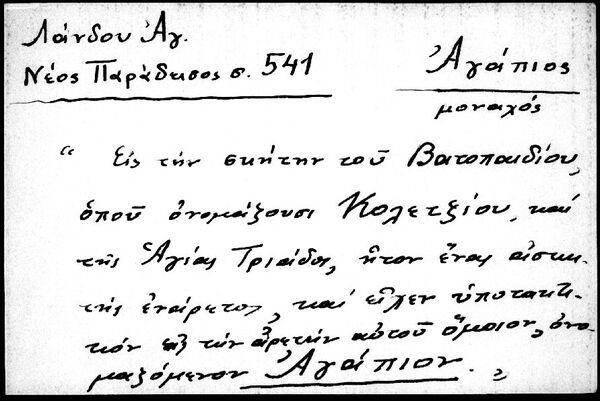 Λάνδου Ἀγ.
Νέος Παράδεισος σ. 541
Ἀγάπιος
μοναχός
“ Εἰς τὴν σκήτην τοῦ Βατοπαιδίου,
ὁποῦ ὀνομάζουσι Κολετζίου, καὶ
τῆς Ἁγίας Τριάδος, ἦτον ἕνας ἀσκη-
τὴς ἐνάρετος, καὶ εἶχεν ὑποτακτι-
κόν εἰς τὴν ἀρετὴν αὐτοῦ ὅμοιον, ὀνο-
μαζόμενον Ἀγάπιον. „